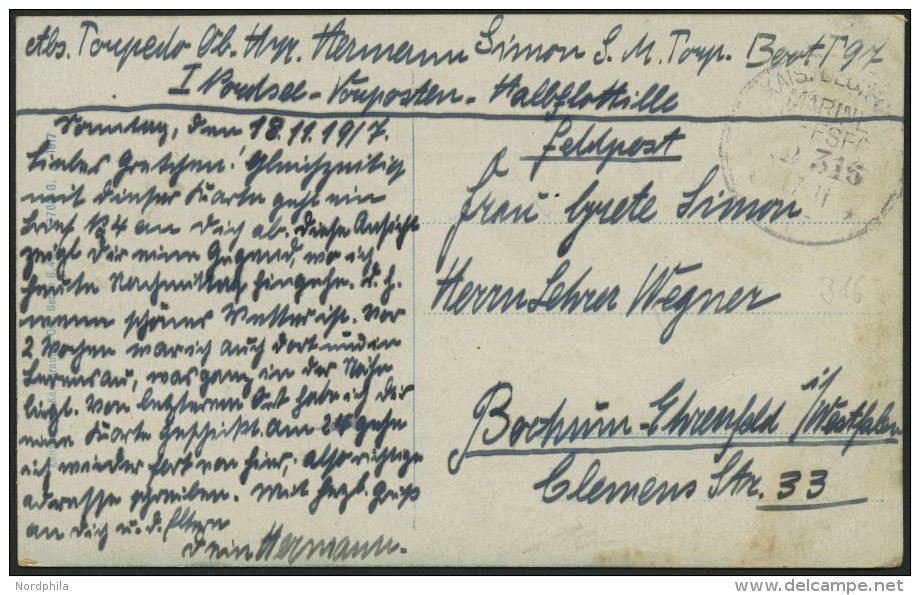 Abs. Torpedo Ob. Hzr. Hermann Simon S. M. Torp. Boot T 97
I Nordsee-Vorposten-Halbflottille
Sonntag, den 18.11.1917.
Liebes Gretchen! Gleichzeitig
mit dieser Karte geht ein
Brief № 4 an Dich ab. Diese Ansicht
zeigt Dir eine Gegend, wo ich
heute Nachmittag hingehe. d. h.
wenn schönes Wetter ist. Vor
2 Wochen war ich auch dort und in
was ganz in der Nähe
liegt. Von letzterem Ort habe ich dir
eine Karte geschickt. Am 24 gehe
ich wieder fort von hier, also richtige
adresse schreiben. Mit herzl. Gruß
an Dich u. d. Eltern
Dein Hermann.
Feldpost
Frau Grete Simon
Herrn Lehrer Wegner
Bochum-Ehrenfeld i/Westfalen
Clemens Str. 33
MARINE
316
316
Nordphila
delcampe.net